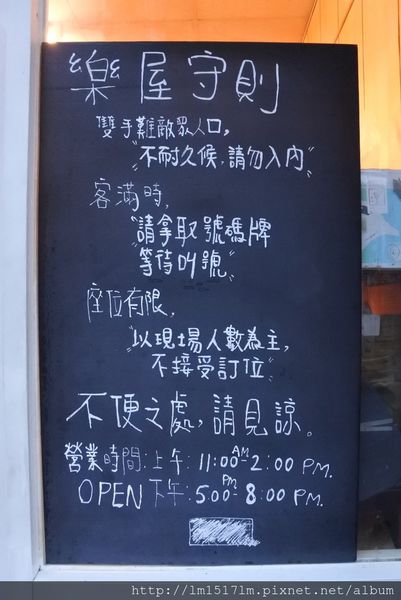 樂屋守則
雙手難敵眾人口,
"不耐久候,請勿入內"
客滿時,
"請拿取號碼牌
等待叫號"
座位有限,
"以現場人數為主,
不接受訂位"
不便之處,請見諒。
營業時間:上午:11:00AM-2:00 PM.
OPEN 下午:5:00PM-8:00 PM.
http://lm1517lm.pixnet.net/album